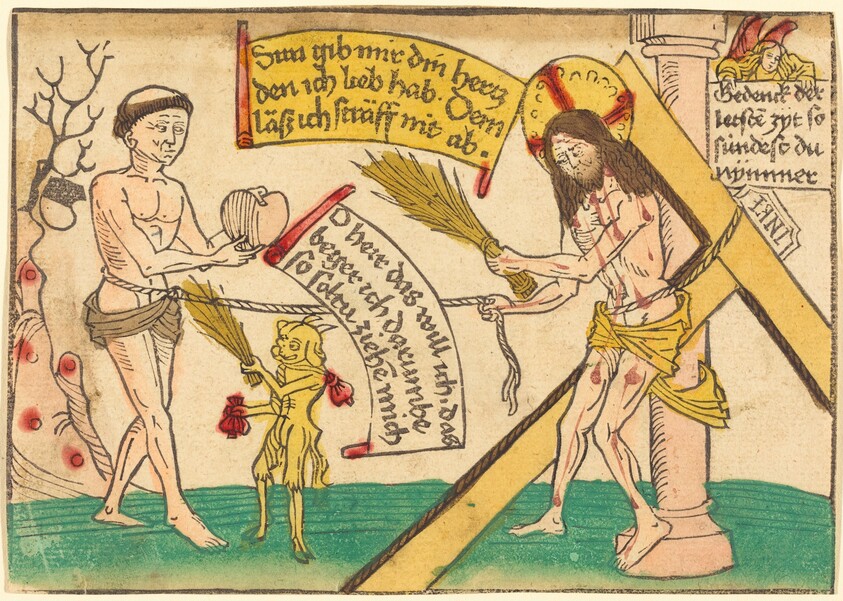 Sun gib mir din hertz
den ich lieb hab. Dem
läß ich sträff nit ab.
O herr das will ich. das
beger ich darumbe
so soltu ziehe mich
Gedenck der
letste zyt so
sündest du
nymmer
INRI